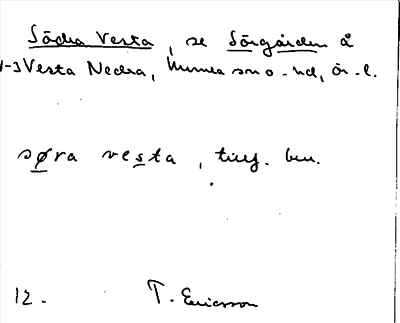 Södra Vesta, se Sörgården å
1-3 Vesta Nedra, Hunnea sn o -hd, Ör. l.
søra vesta, tillf. ben.
12. T. Ericsson